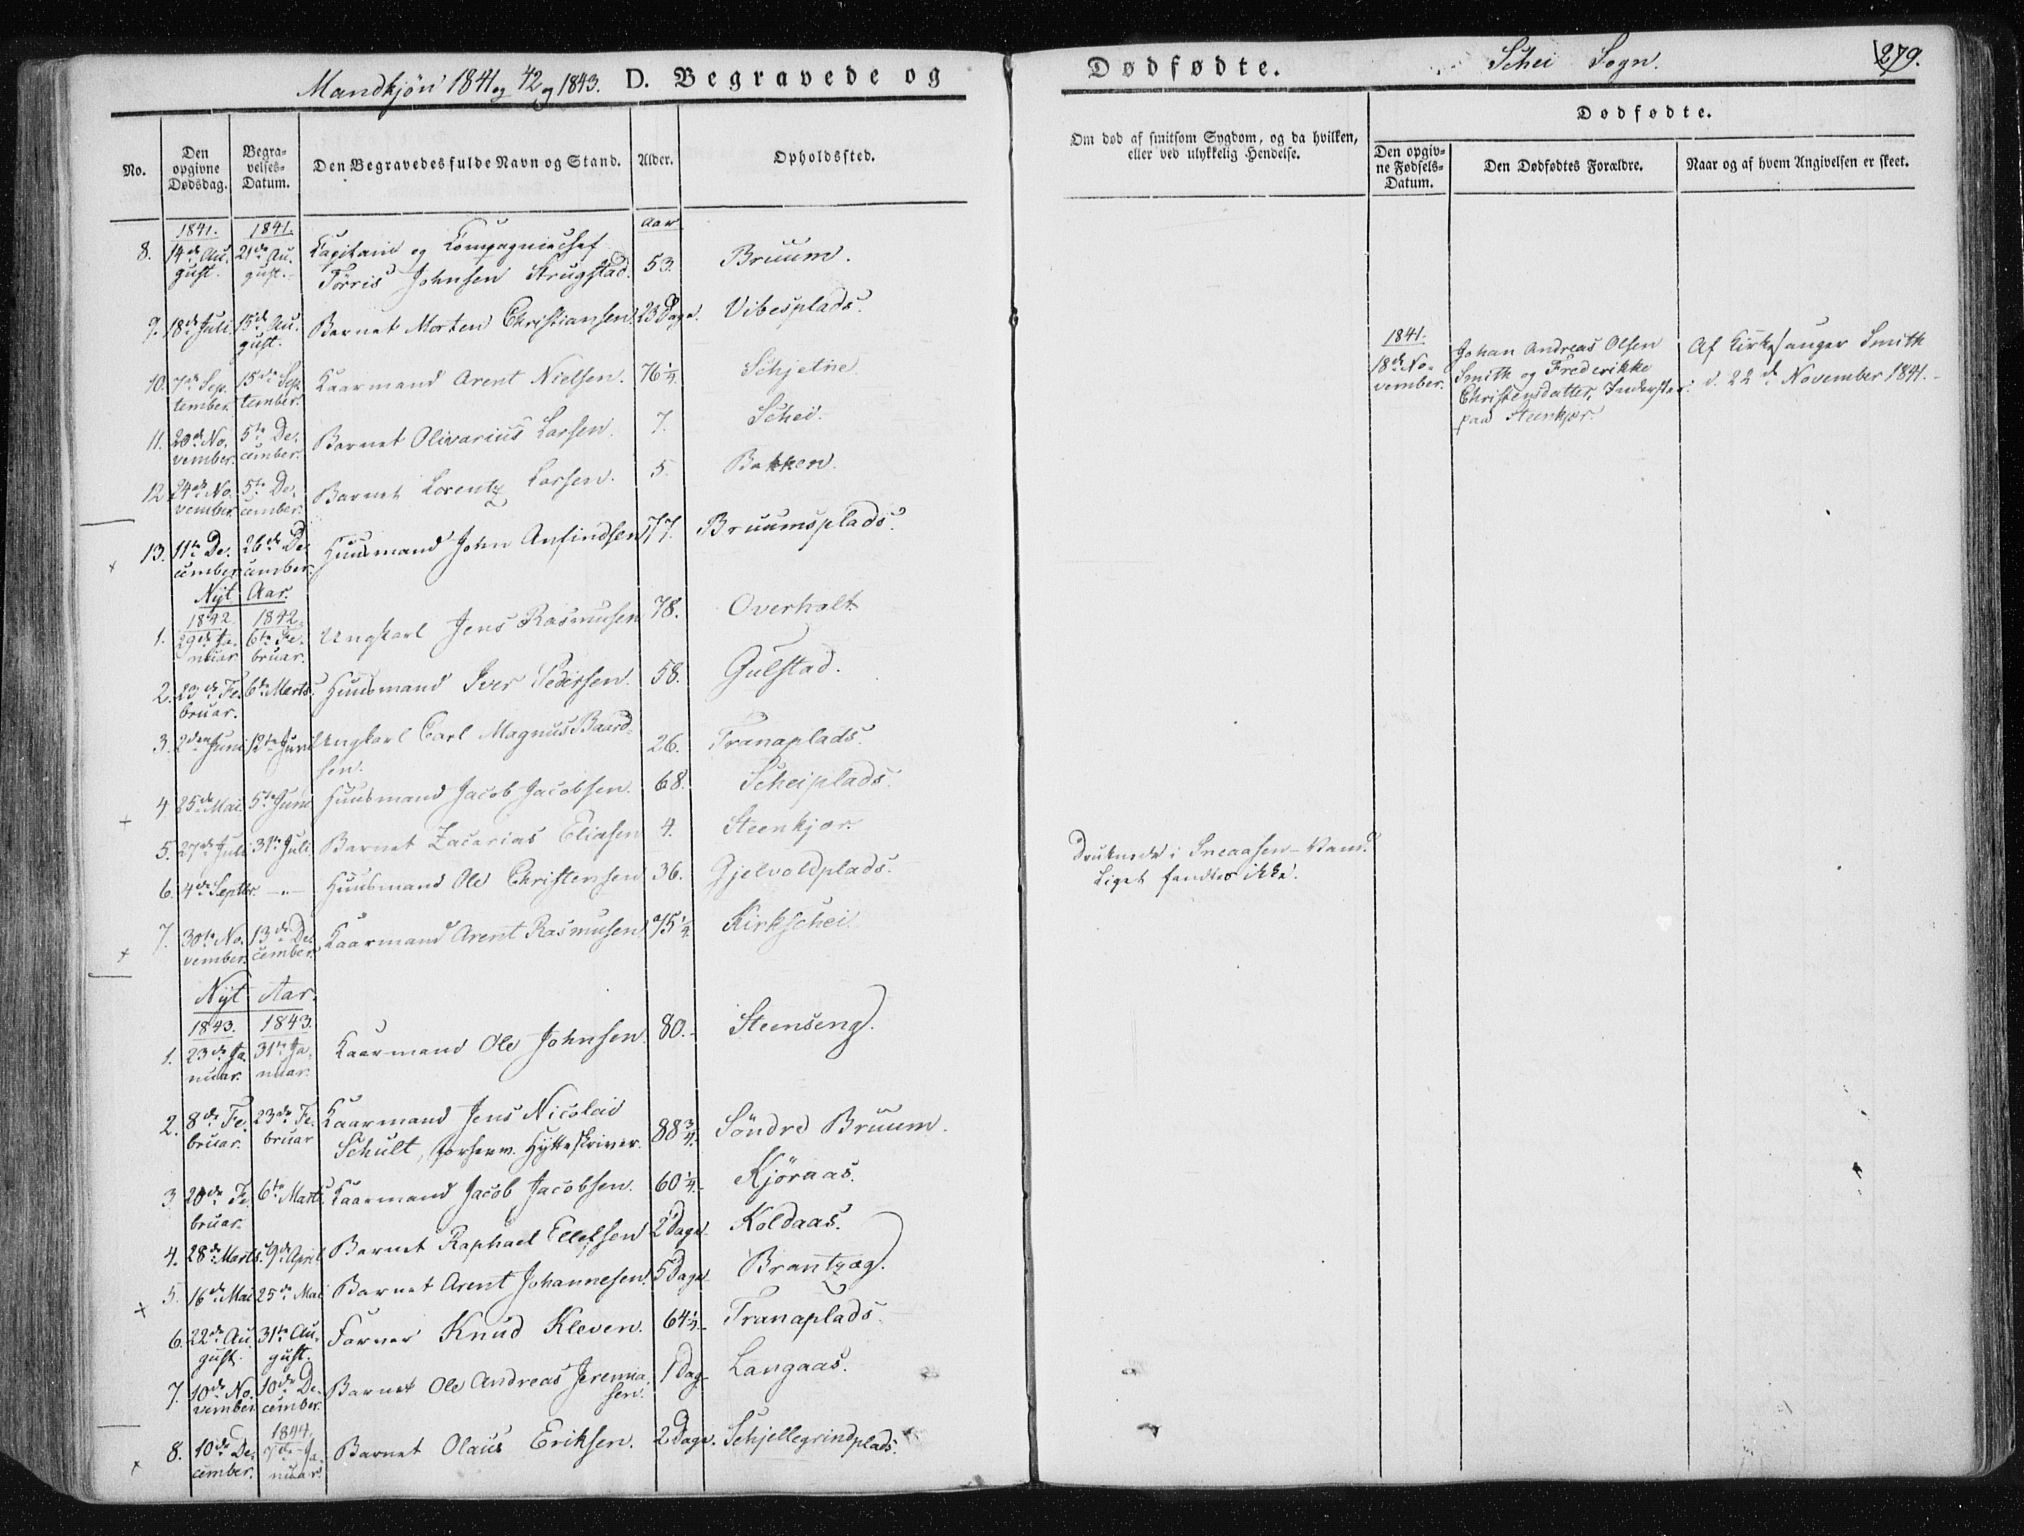 Mandkjön 1841 og 42 og 1843. D. Begravede og
Dødfødte.
Schei Sogn.
279.
No.
Den opgivne Dødsdag.
Begravelses-Datum.
Den Begravedes fulde Navn og Stand.
Alder.
Opholdssted.
Om død af smitsom Sygdom, og da hvilken,
eller ved ulykkelig Hendelse.
Dødfødte.
Den opgivne Fødsels-Datum.
Den Dødfødtes Forældre.
Naar og af hvem Angivelsen er skeet.
1841. 1841. Aar
8. 14de August. 21de August. Capitain og Compagniechef Tørris Johnsen Strugstad. 53. Bruum.
9. 18de Juli 15de August. Barnet Morten Christiansen. 23 Dage. Vibesplads.
10. 7de September. 15de September. Kaarmand Arent Nielsen. 76 1/2 Schjelne.
11. 20de November. 5te December. Barnet Olivarius Larsen. 7. Schei.
12. 24de November. 5te December. Barnet Lorentz Larsen. 5. Bakken.
13. 11te December. 26de December. Huusmand John Anfindsen 77. Bruumsplads.
Nyt Aar.
1842. 1842.
1. 29de Januar 6te Februar. Ungkarl Jens Rasmusen 78. Overholt
2. 23de Februar. 6te Marts. Huusmand Iver Pedersen. 58. Gulstad.
3. 2den Juni 12te Juni Ungkarl Carl Magnus Baardsen. 26. Tranaplads.
4 25de Mai. 5te Juni Huusmand Jacob Jacobsen. 68. Scheiplads.
5. 27de Juli 31te Juli. Barnet Zacarias Eliasen 4. Steenkjær.
6. 4de Septbr. -"- Huusmand Ole Christensen 36. Gjelvoldplads. Druknede i Sneaasen-Vand. Liget fandtes ikke.
7. 30te November. 13de December. Kaarmand Arent Rasmusen 75 1/2 Kirkschei.
Nyt Aar.
1843. 1843.
1. 23de Januar. 31te Januar. Kaarmand Ole Johnsen. 80.- Steenseng.
2. 8de Februar. 23de Februar Kaarmand Jens Nicolai Schult, forhenv. Hytteskriver. 88 3/4. Söndre Bruum.
3 20de Februar. 6te Marts Kaarmand Jacob Jacobsen. 60 1/4.- Kjöraas.
4. 28de Marts. 9de April Barnet Raphael Ellefsen 2 Dage. Koldaas.
5. 16de Mai 25de Mai Barnet Arent Johannesen. 5 Dage. Brantzæg.
6. 22de August. 31te August. Farver Knud Kleven. 64 1/2- Tranaplads.
7. 10de November 10de December. Barnet Ole Andreas Jeremiasen. 1 Dag- Langaas.
1844.
8. 10de December. 7de Januar. Barnet Olaus Eriksen. 2 Dage. Schjellegrindplads.
1841.
18de November. Johan Andreas Olsen Smith og Frederikke Christensdatter, Inderster paa Steenkjær. Af Kirkesanger Smith d. 22de November 1841.-